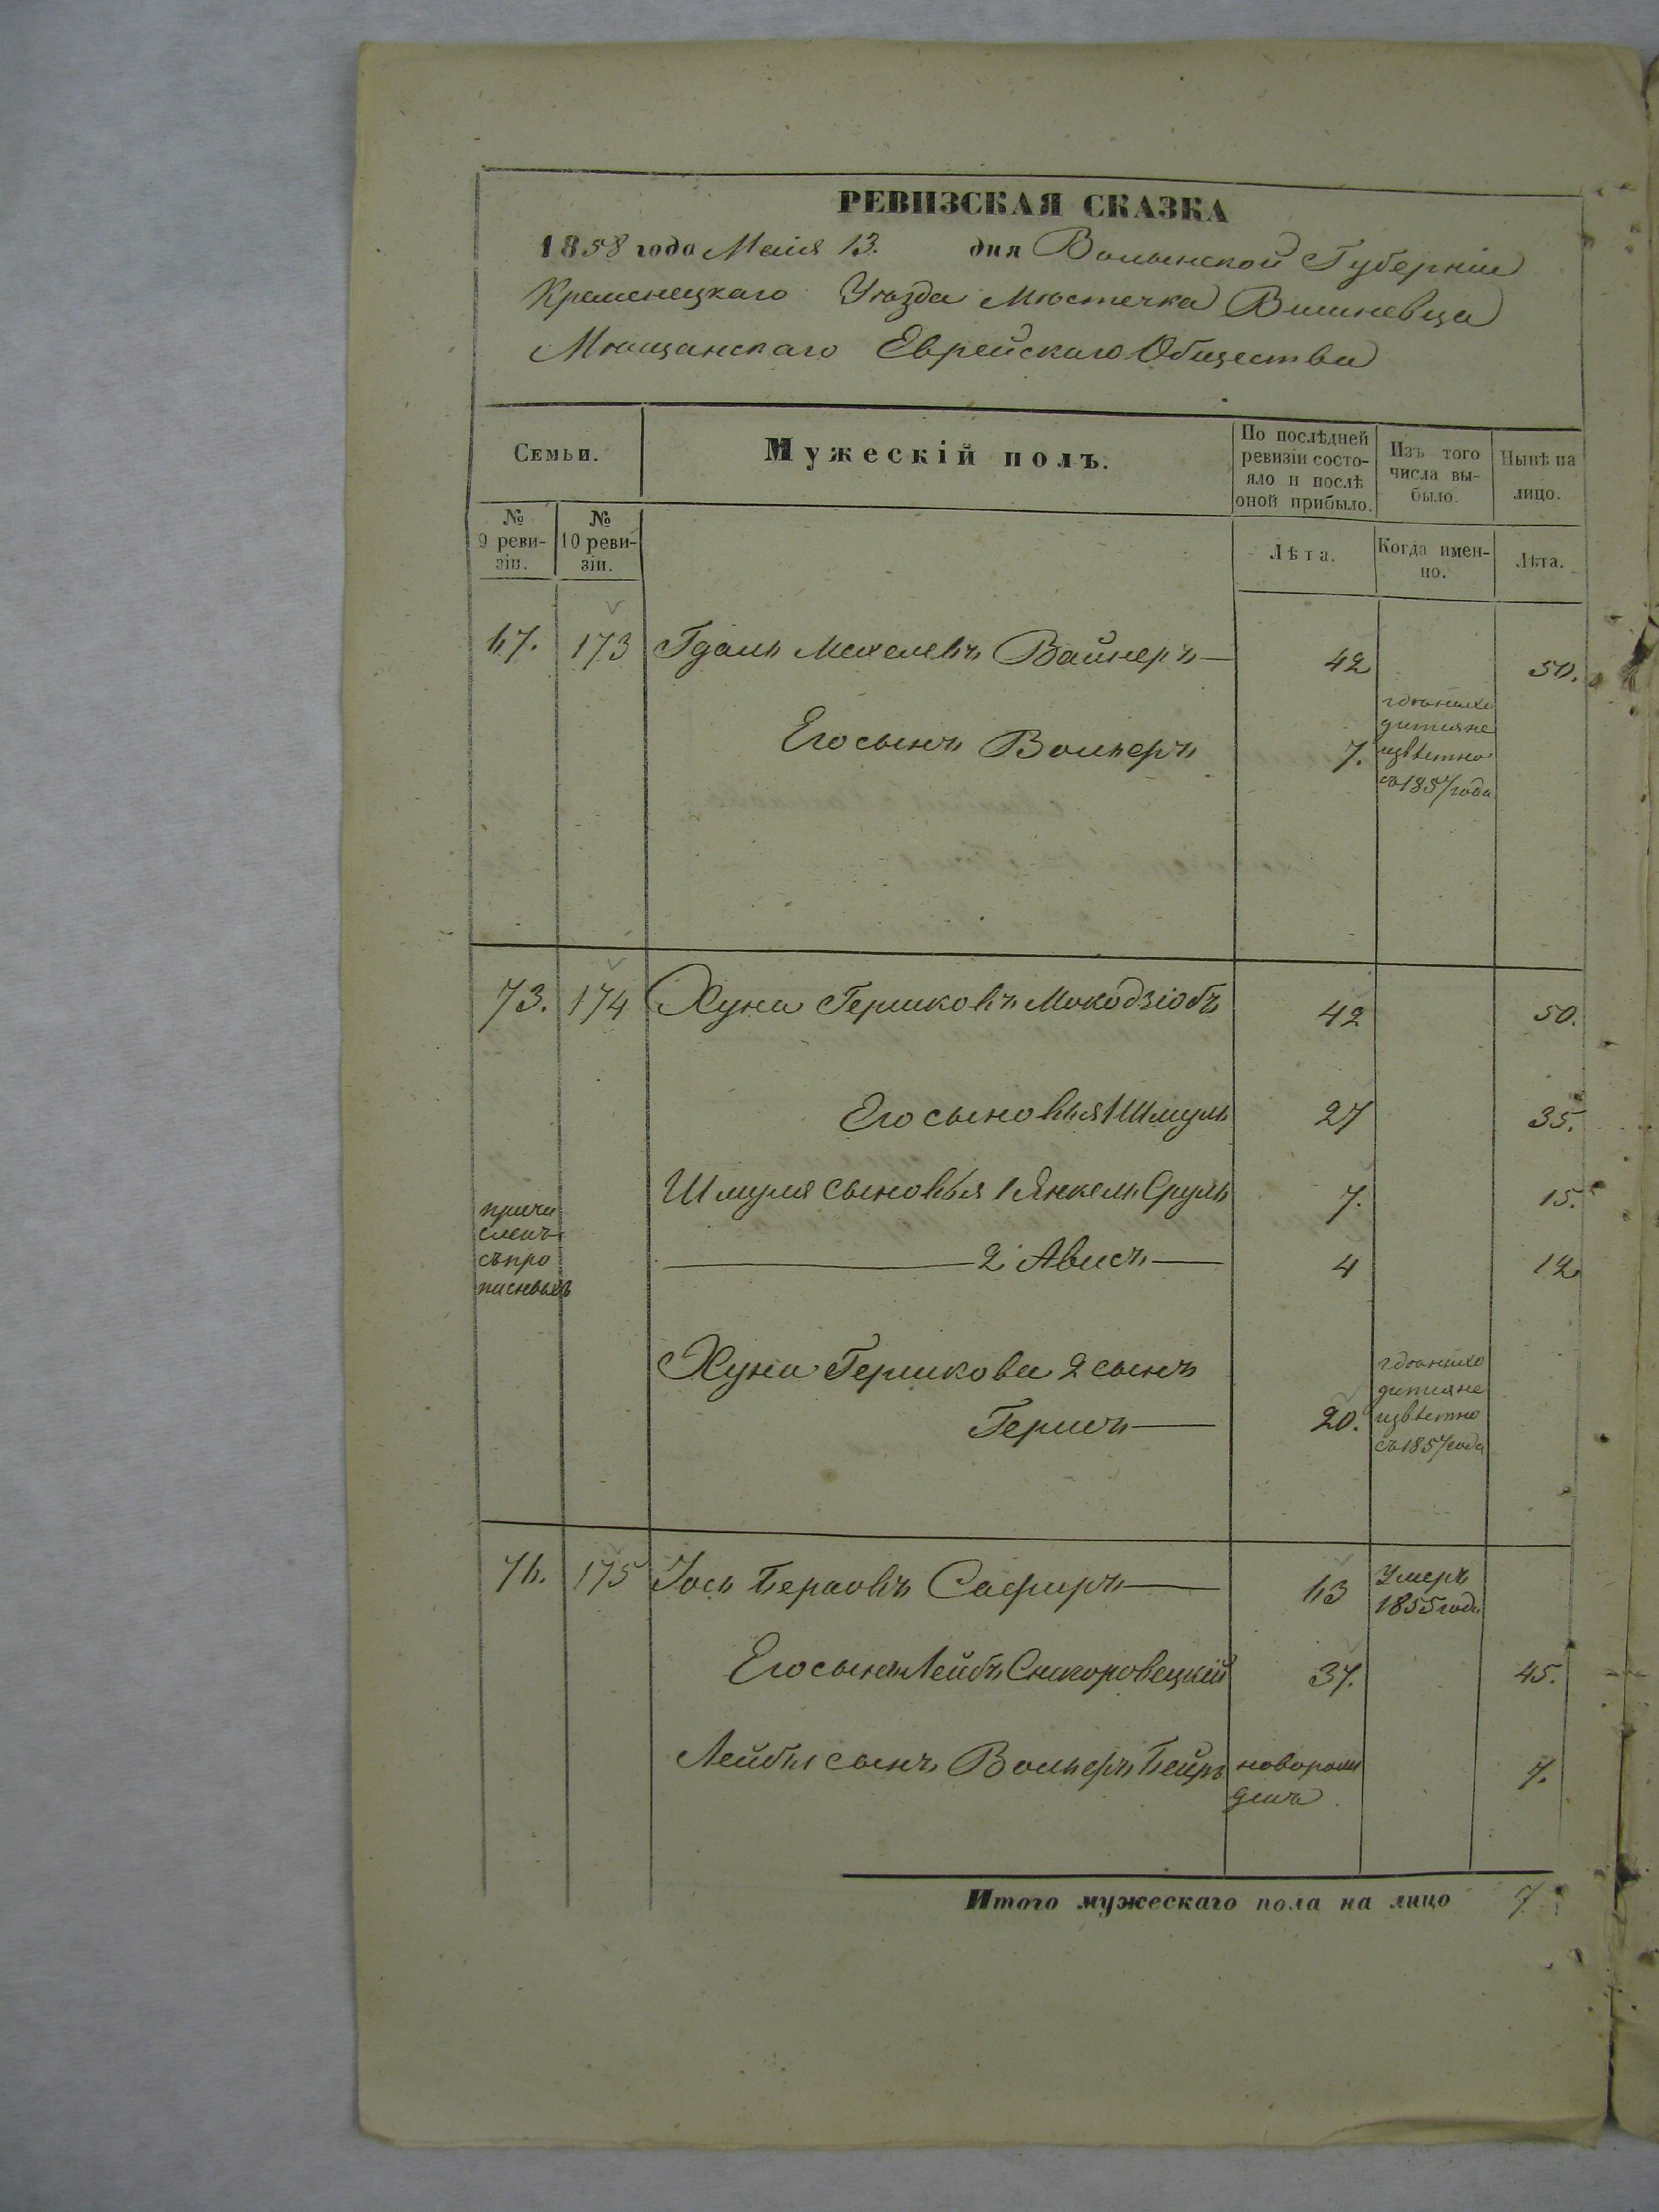 РЕВИЗСКАЯ СКАЗКА
1858 года Маія 13. дня Волынской Губерніи
Кременецкаго Уѣзда Мѣстечка Вишневца
Мѣщанскаго Еврейскаго Общества
Семьи. Мужескій полъ. По послѣдней ревизіи состояло и послѣ оной прибыло. Изъ того числа выбыло. Нынѣ на лицо.
№ 9 ревизіи. № 10 ревизіи. Лѣта. Когда именно. Лѣта.
67. 173 Гдаль Мехелевъ Вайнеръ 42 50.
Его сынъ Вольперъ 7. гдѣ находится неизвѣстно съ 1857 года
73. 174 Хуна Гершковъ Мокодзіобъ 42 50.
Его сыновья 1 Шмуль 27 35.
Шмуля сыновья 1 Янкель Сруль 7. 15.
причисленъ съ прописныхъ
2. Ависъ 4 12
Хуна Гершкова 2 сынъ
Гершъ 20. гдѣ находится неизвѣстно съ 1857 года
76. 175 Іось Берковъ Сафиръ 63 Умеръ 1855 года
Его сынъ Лейбъ 37. 45.
Лейбы сынъ Вольперъ Бейръ новорожденъ 7.
Итого мужескаго пола на лицо 7.